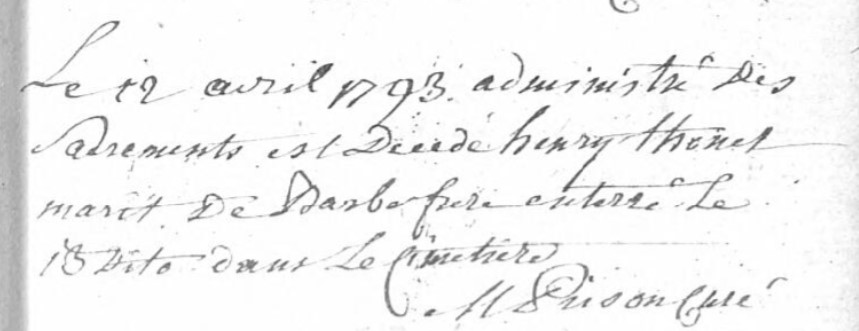 Le 12 avril 1793. administré des
Sacrements est Decedé henry thonet
marit De Barbe frere enterré Le
13 dito dans Le Cimetiere
M Pirson Curé